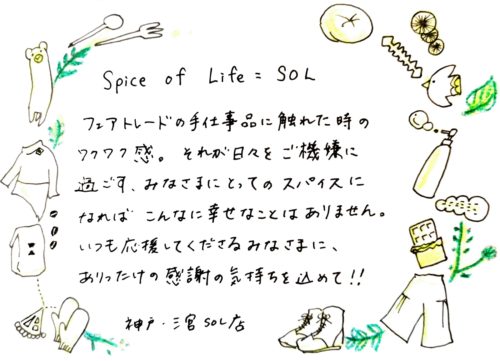 Spice of Life = SOL
フェアトレードの手仕事品に触れた時の
ワクワク感。それが日々をご機嫌に
過ごす、みなさまにとってのスパイスに
なれば こんなに幸せなことはありません。
いつも応援してくださるみなさまに、
ありったけの感謝の気持ちを込めて!!
神戸・三宮 SOL店